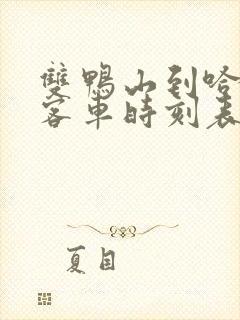 雙鴨山到哈
客車時刻表
夏目